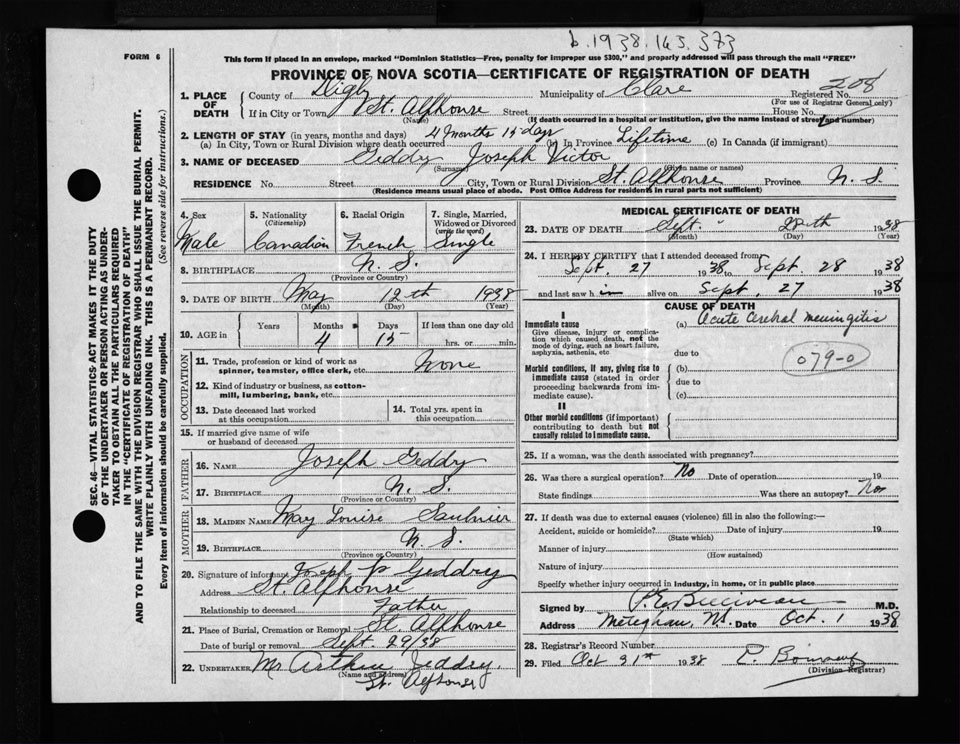 b.1938.163.373
FORM 6
This form if placed in an envelope, marked "Dominion Statistics—Free, penalty for improper use $300," and properly addressed will pass through the mail "FREE"
PROVINCE OF NOVA SCOTIA—CERTIFICATE OF REGISTRATION OF DEATH
SEC. 46—VITAL STATISTICS ACT MAKES IT THE DUTY
OF THE UNDERTAKER OR PERSON ACTING AS UNDER-
TAKER TO OBTAIN ALL THE PARTICULARS REQUIRED
IN THE "CERTIFICATE OF REGISTRATION OF DEATH"
AND TO FILE THE SAME WITH THE DIVISION REGISTRAR WHO SHALL ISSUE THE BURIAL PERMIT.
WRITE PLAINLY WITH UNFADING INK. THIS IS A PERMANENT RECORD.
Every item of information should be carefully supplied. (See reverse side for instructions.)
1. PLACE OF DEATH County of Digby Municipality of Clare Registered No. 208
(For use of Registrar General only)
If in City or Town St. Alphonse Street House No.
(Name) (If death occurred in a hospital or institution, give the name instead of street and number)
2. LENGTH OF STAY (in years, months and days)
(a) In City, Town or Rural Division where death occurred 4 months 15 days (b) In Province Lifetime (c) In Canada (if immigrant)
3. NAME OF DECEASED Geddry Joseph Victor
(Surname) (Given name or names)
RESIDENCE No. Street City, Town or Rural Division St. Alphonse Province N. S.
(Residence means usual place of abode. Post Office Address for Residents in rural parts not sufficient)
4. Sex 5. Nationality 6. Racial Origin 7. Single, Married,
(Citizenship) Widowed or Divorced
(write the word)
Male Canadian French Single
8. BIRTHPLACE N. S.
(Province or Country)
9. DATE OF BIRTH May 12th 1938
(Month) (Day) (Year)
10. AGE in Years Months Days If less than one day old
4 15 hrs. or min.
OCCUPATION
11. Trade, profession or kind of work as
spinner, teamster, office clerk, etc. None
12. Kind of industry or business, as cotton-
mill, lumbering, bank, etc.
13. Date deceased last worked
at this occupation
14. Total yrs. spent in
this occupation
15. If married give name of wife
or husband of deceased
FATHER
16. NAME Joseph Geddry
17. BIRTHPLACE N. S.
(Province or Country)
MOTHER
18. MAIDEN NAME May Louise Saulnier
19. BIRTHPLACE N. S.
(Province or Country)
20. Signature of informant Joseph P Geddry
Address St. Alphonse
Relationship to deceased Father
21. Place of Burial, Cremation or Removal St. Alphonse
Date of burial or removal Sept. 29/38
22. UNDERTAKER Mr Arthur Geddry,
(Name and address)
St. Alphonse
MEDICAL CERTIFICATE OF DEATH
23. DATE OF DEATH Sept. 28th 1938
(Month) (Day) (Year)
24. I HEREBY CERTIFY that I attended deceased from
Sept. 27 1938 to Sept. 28 1938
and last saw him alive on Sept. 27 1938
CAUSE OF DEATH
I
Immediate cause (a) Acute Cerebral meningitis
Give disease, injury or complica-
tion which caused death, not the
mode of dying, such as heart failure,
asphyxia, asthenia, etc
due to
079-0
Morbid conditions, if any, giving rise to
immediate cause (stated in order
proceeding backwards from im-
mediate cause).
(b)
due to
(c)
II
Other morbid conditions (if important)
contributing to death but not
causally related to immediate cause.
25. If a woman, was the death associated with pregnancy?
26. Was there a surgical operation? No Date of operation 19
State findings Was there an autopsy? No
27. If death was due to external causes (violence) fill in also the following:—
Accident, suicide or homicide? Date of injury 19
(State which)
Manner of injury
(How sustained)
Nature of injury
Specify whether injury occurred in industry, in home, or in public place
Signed by M.D.
Address Meteghan, N.S. Date Oct. 1 1938
28. Registrar's Record Number
29. Filed Oct 31st 1938
(Division Registrar)